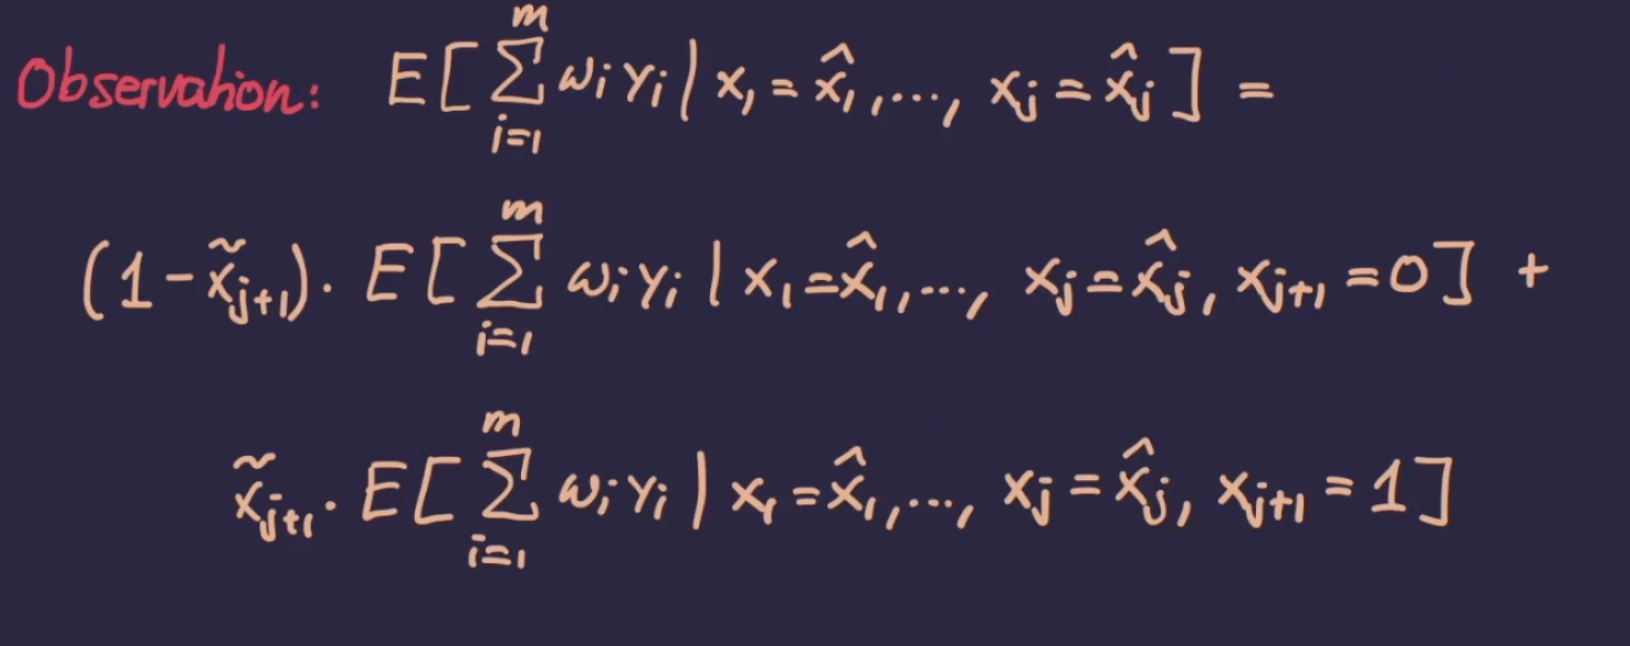 Observation: E[∑_{i=1}^{m} w_i y_i | x_1 = x̂_1, ..., x_j = x̂_j] =
(1 - x̃_{j+1}) · E[∑_{i=1}^{m} w_i y_i | x_1 = x̂_1, ..., x_j = x̂_j, x_{j+1} = 0] +
x̃_{j+1} · E[∑_{i=1}^{m} w_i y_i | x_1 = x̂_1, ..., x_j = x̂_j, x_{j+1} = 1]